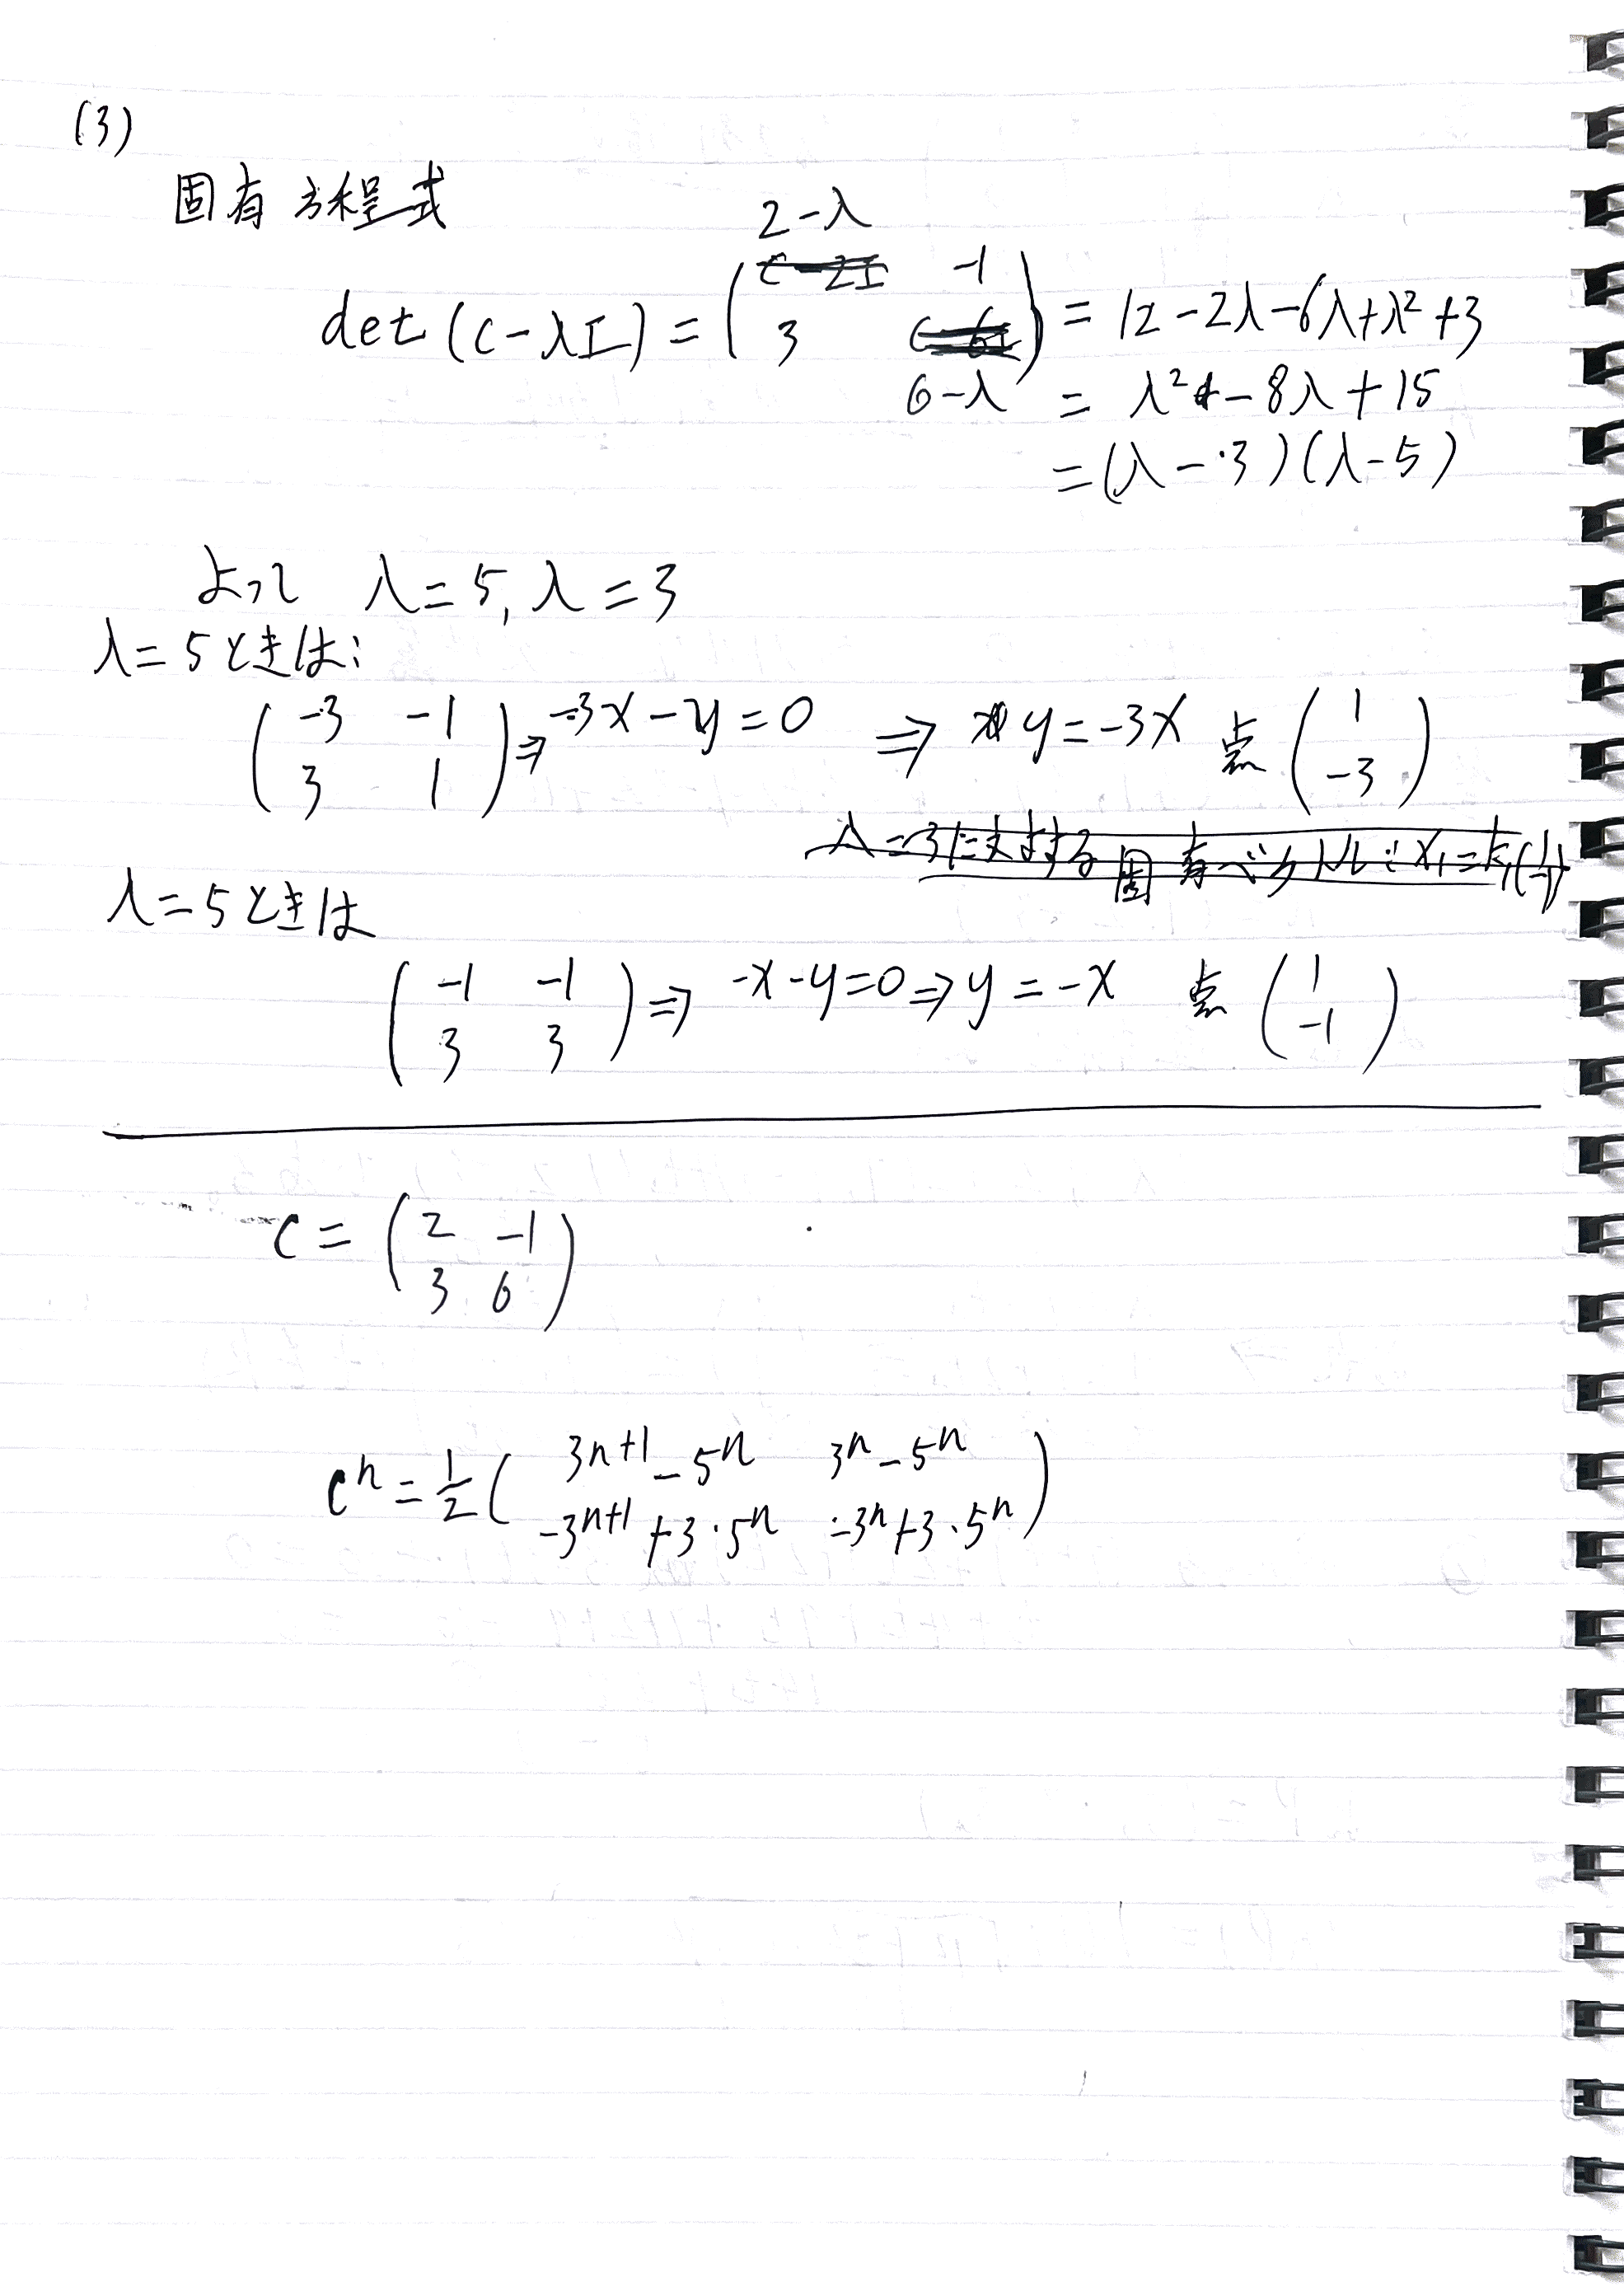 (3)
固有方程式
det(C-λI) = ( 2-λ -1
3 6-λ ) = 12-2λ-6λ+λ²+3
= λ²-8λ+15
=(λ-3)(λ-5)
よって λ=5, λ=3
λ=5ときは:
( -3 -1
3 1 ) ⇒ -3x-y=0 ⇒ y=-3x 点 ( 1
-3 )
λ=3に対する固有ベクトルは x₁=k₁(1 -1)
λ=5ときは
( -1 -1
3 3 ) ⇒ -x-y=0 ⇒ y=-x 点 ( 1
-1 )
C = ( 2 -1
3 6 )
Cⁿ = 1/2 ( 3ⁿ⁺¹-5ⁿ 3ⁿ-5ⁿ
-3ⁿ⁺¹+3·5ⁿ -3ⁿ+3·5ⁿ )